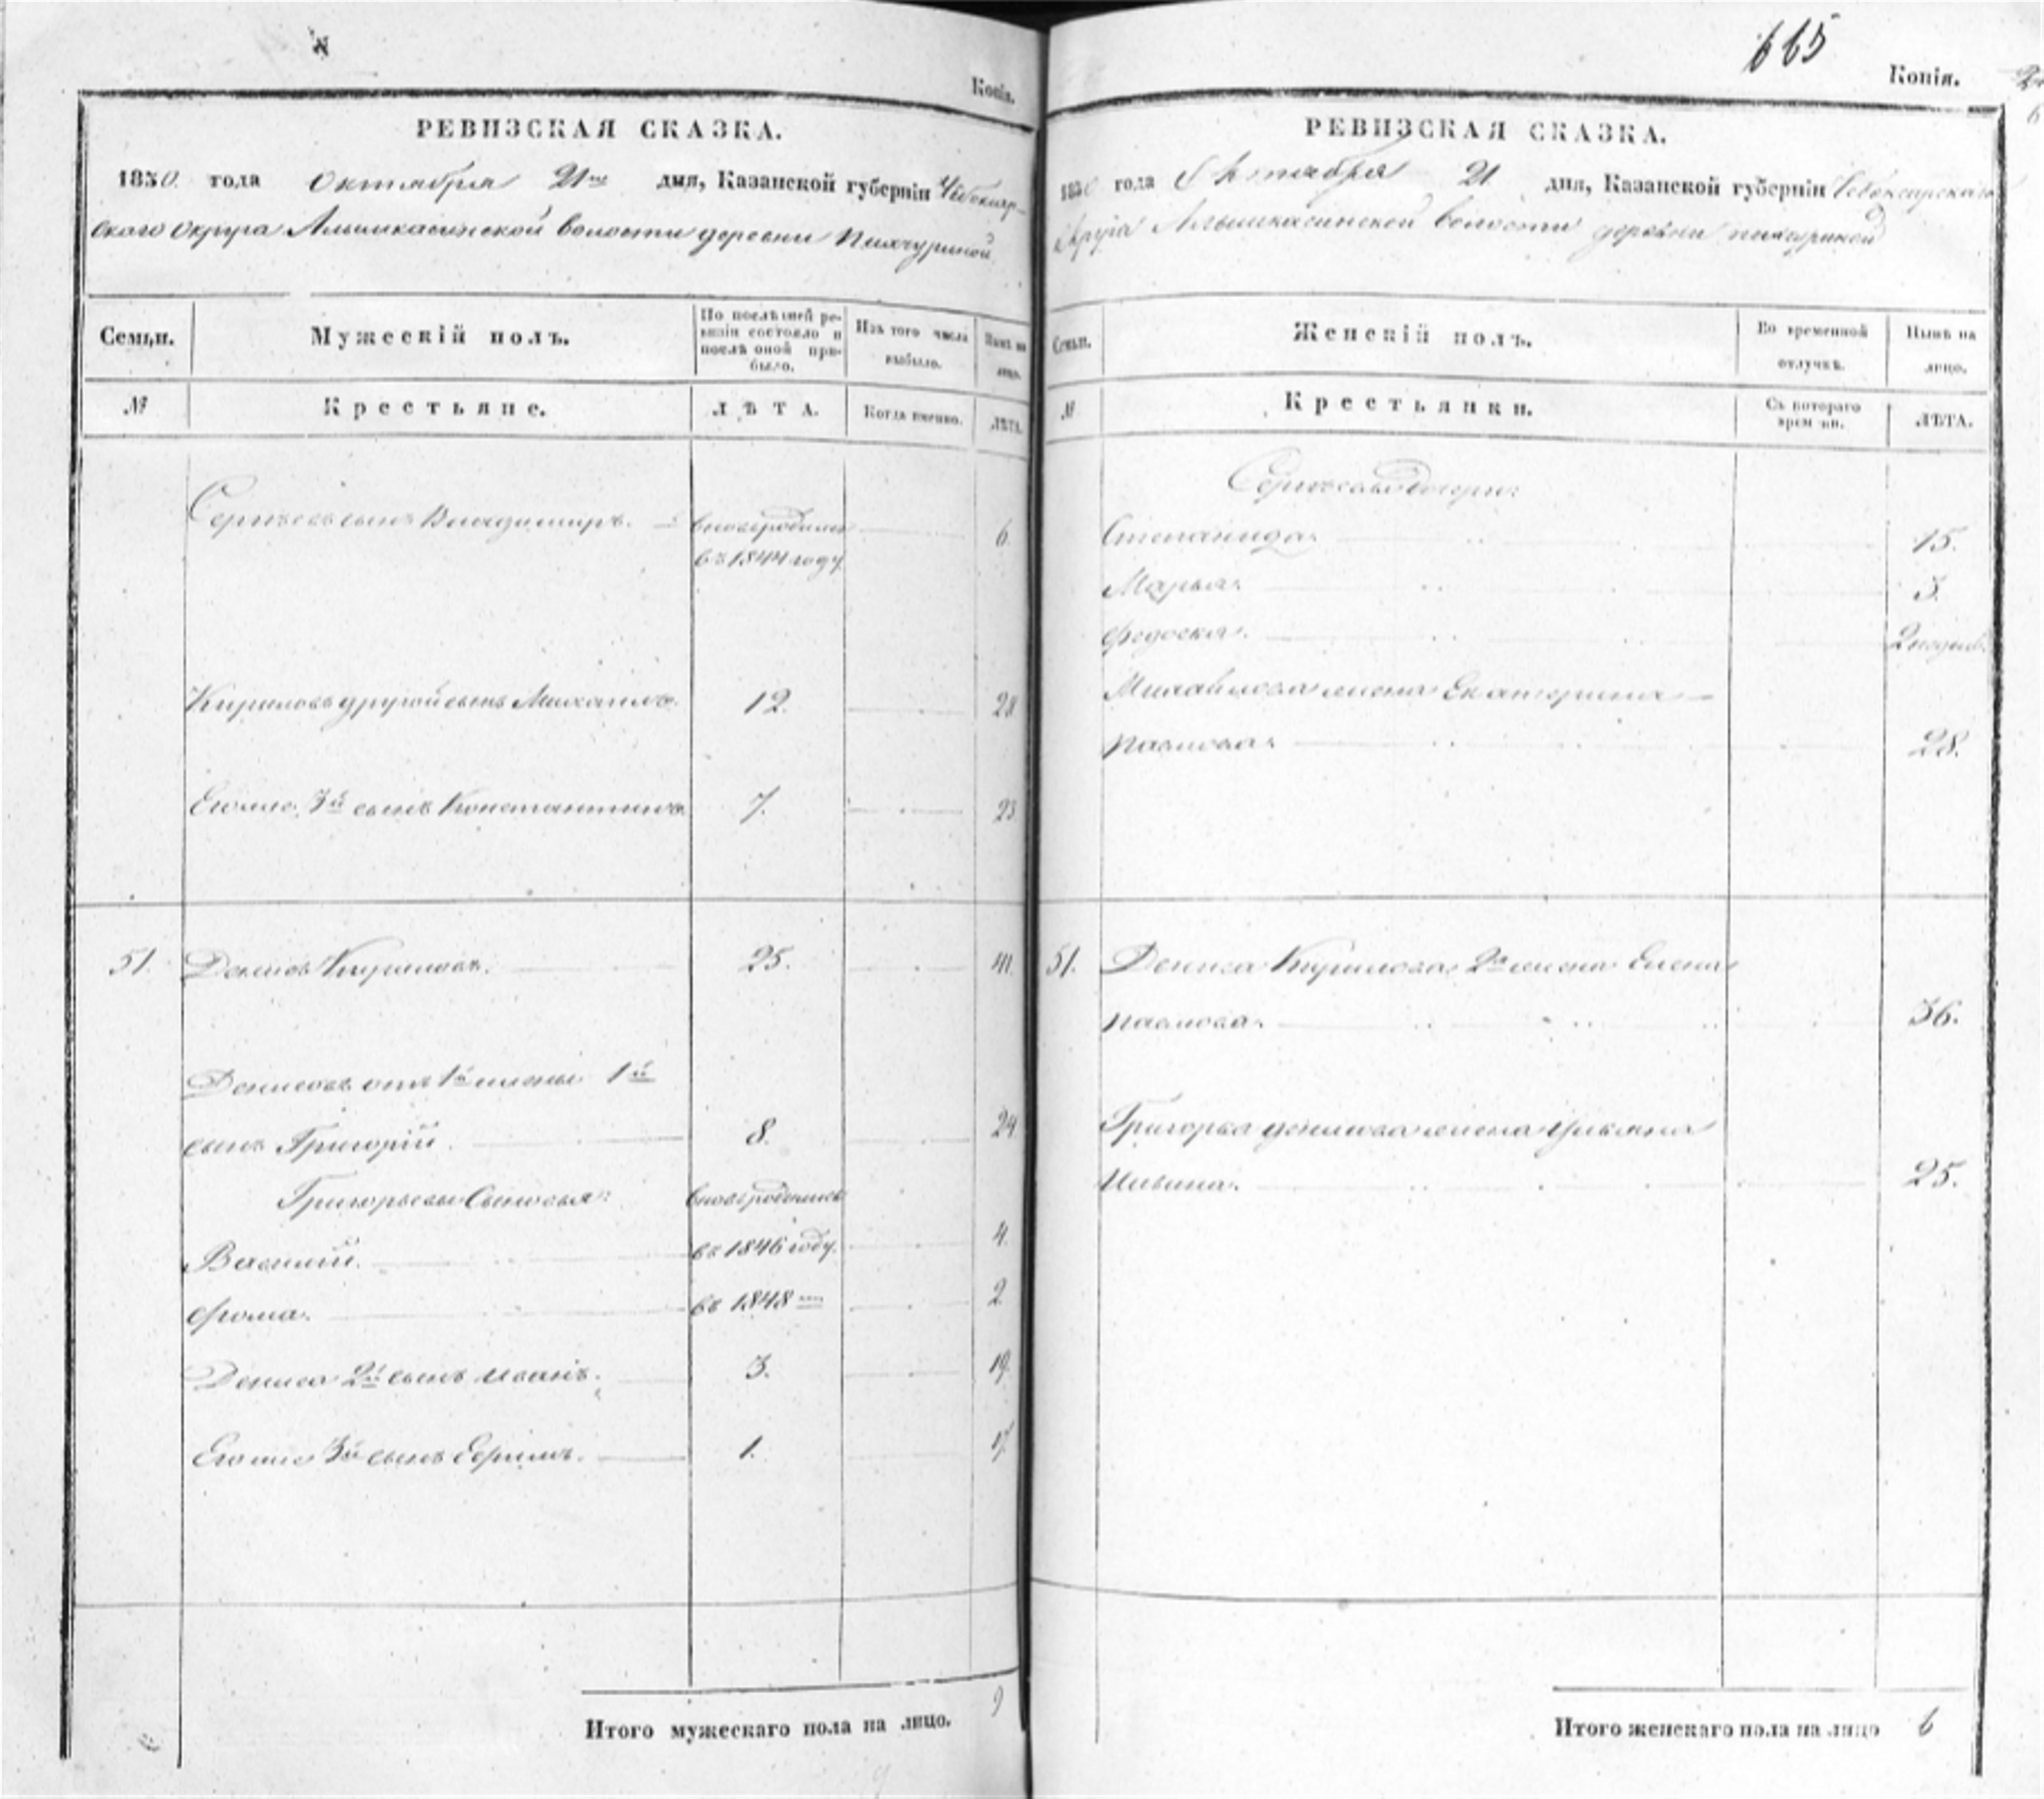 Копія.
РЕВИЗСКАЯ СКАЗКА.
1850 года Октября 21го дня, Казанской губерніи Чебоксар-
скаго округа Алымкасинской волости деревни Пихчуриной
Семьи.
Мужескій полъ.
По послѣдней ре-
визіи состояло и
послѣ оной при-
было.
Изъ того числа
выбыло.
Нынѣ на
лицо.
№
Крестьяне.
ЛѢТА.
Когда именно.
ЛѢТА.
Сергѣевъ сынъ Владимиръ. вновь родился 6.
въ 1844 году
Кириловъ другой сынъ Михаилъ. 12. 28
Егоже 3й сынъ Константинъ 7. 23
51. Денисъ Кириловъ. 25. 41.
Денисовъ отъ 1й жены 1й
сынъ Григорій. 8. 24
Григорьевы сыновья: вновь родились
Василій. въ 1846 году. 4.
Фома. въ 1848 2
Дениса 2й сынъ Иванъ. 3. 19.
Егоже 3й сынъ Ефримъ. 1. 17.
Итого мужескаго пола на лицо. 9
665
Копія.
РЕВИЗСКАЯ СКАЗКА.
1850 года Октября 21 дня, Казанской губерніи Чебоксарскаго
округа Алымкасинской волости деревни Пихчуриной
Семьи.
Женскій полъ.
Во временной
отлучкѣ.
Нынѣ на
лицо.
№
Крестьянки.
Съ котораго
времени.
ЛѢТА.
Сергѣевы дочери:
Степанида. 15.
Марья. 3.
Федоска. 2 недѣль
Михайлова жена Екатерина
Павлова. 28.
51. Дениса Кирилова 2я жена Елена
Павлова. 36.
Григорья Денисова жена Ульяна
Иванова. 25.
Итого женскаго пола на лицо 6